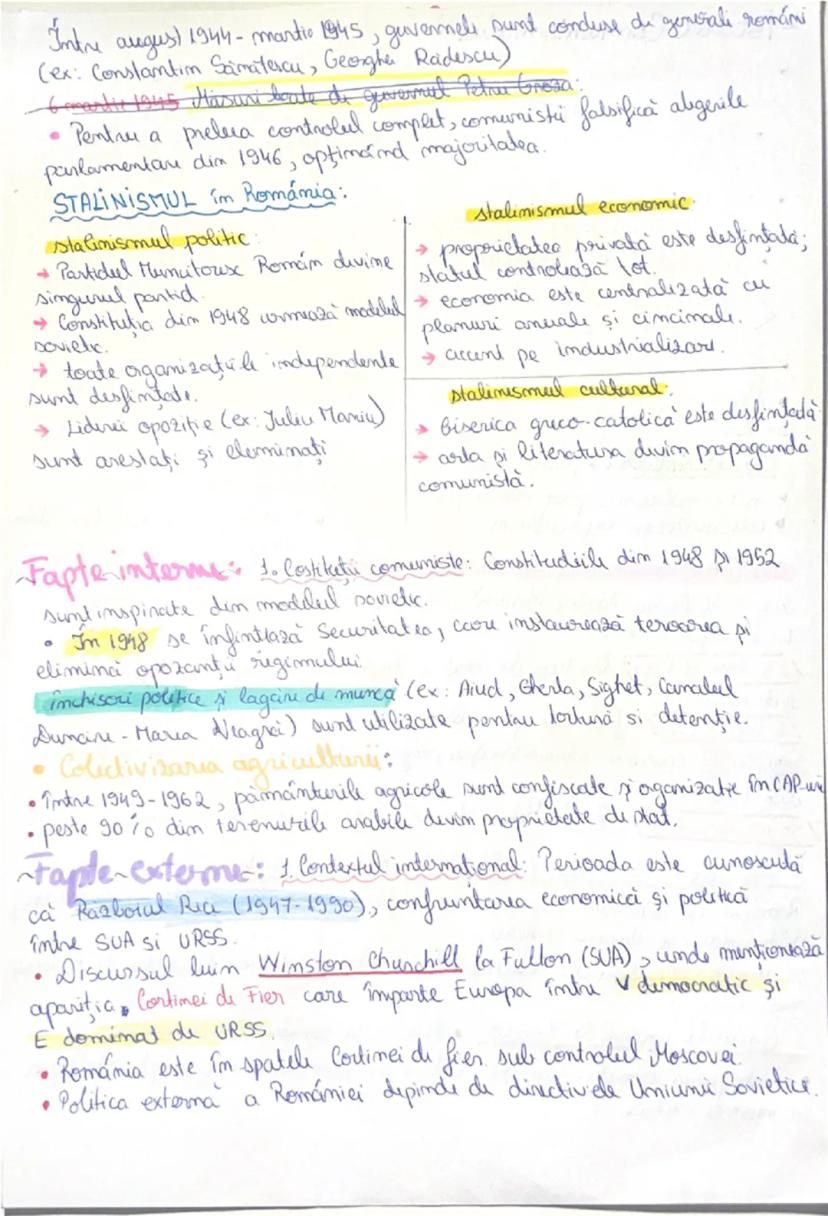 Între august 1944 - martie 1945, guvernele sunt conduse de generali români
(ex: Constantin Sănătescu, Georghe Rădescu)
6 martie 1945 Măsuri luate de guvernul Petru Groza:
• Pentru a prelua controlul complet, comuniștii falsifică alegerile
parlamentare din 1946, obținând majoritatea.
STALINISMUL în România:
stalinismul politic:
→ Partidul Muncitoresc Român devine
singurul partid.
→ Constituția din 1948 urmează modelul
sovietic.
→ toate organizațiile independente
sunt desființate.
→ Liderii opoziție (ex: Juliu Maniu)
sunt arestați și eleminați
stalinismul economic
→ proprietatea privată este desfintată;
statul controlează tot.
→ economia este centralizată cu
planuri anuale și cincinale.
→ accent pe industrializare.
stalinismul cultural:
→ biserica greco-catolică este desfințată
→ arta și literatura devin propagandă
comunistă.
Fapte interne: 1. Costituții comuniste: Constitudiile din 1948 și 1952
sunt inspirate din modelul sovietic.
• În 1948 se înfintează Securitatea, care instaurează teroarea și
elimină opozanții regimului.
închisori politice și lagăre de muncă (ex: Aiud, Gherla, Sighet, Canalul
Dunăre - Marea Neagră) sunt utilizate pentru tortură si detenție.
• Colectivizarea agriculturii:
• între 1949-1962, pământurile agricole sunt confiscate și organizate în CAP-uri
• peste 90% din terenurile arabile devin proprietate de stat.
~Fapte externe: 1. Contextul international: Perioada este cunoscută
ca Războiul Rece (1947-1990), confruntarea economică și politică
între SUA si URSS.
• Discursul luim Winston Churchill la Fulton (SUA), unde menționează
apariția Cortinei de Fier care împarte Europa între V democratic și
E dominat de URSS.
• România este în spatele Cortinei de fier sub controlul Moscovei
• Politica externă a României depinde de directivele Uniunii Sovietice.